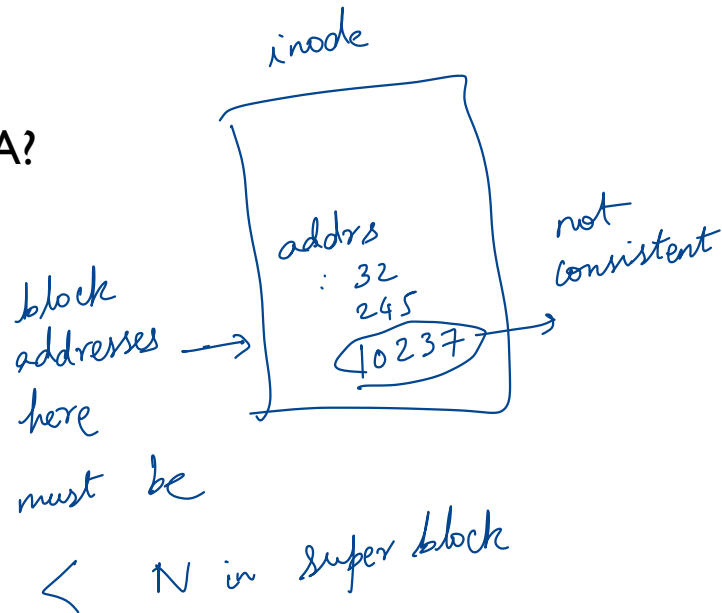 inode
A?
addrs
: 32
245
10237
not
consistent
block
addresses
here
must be
< N in super block